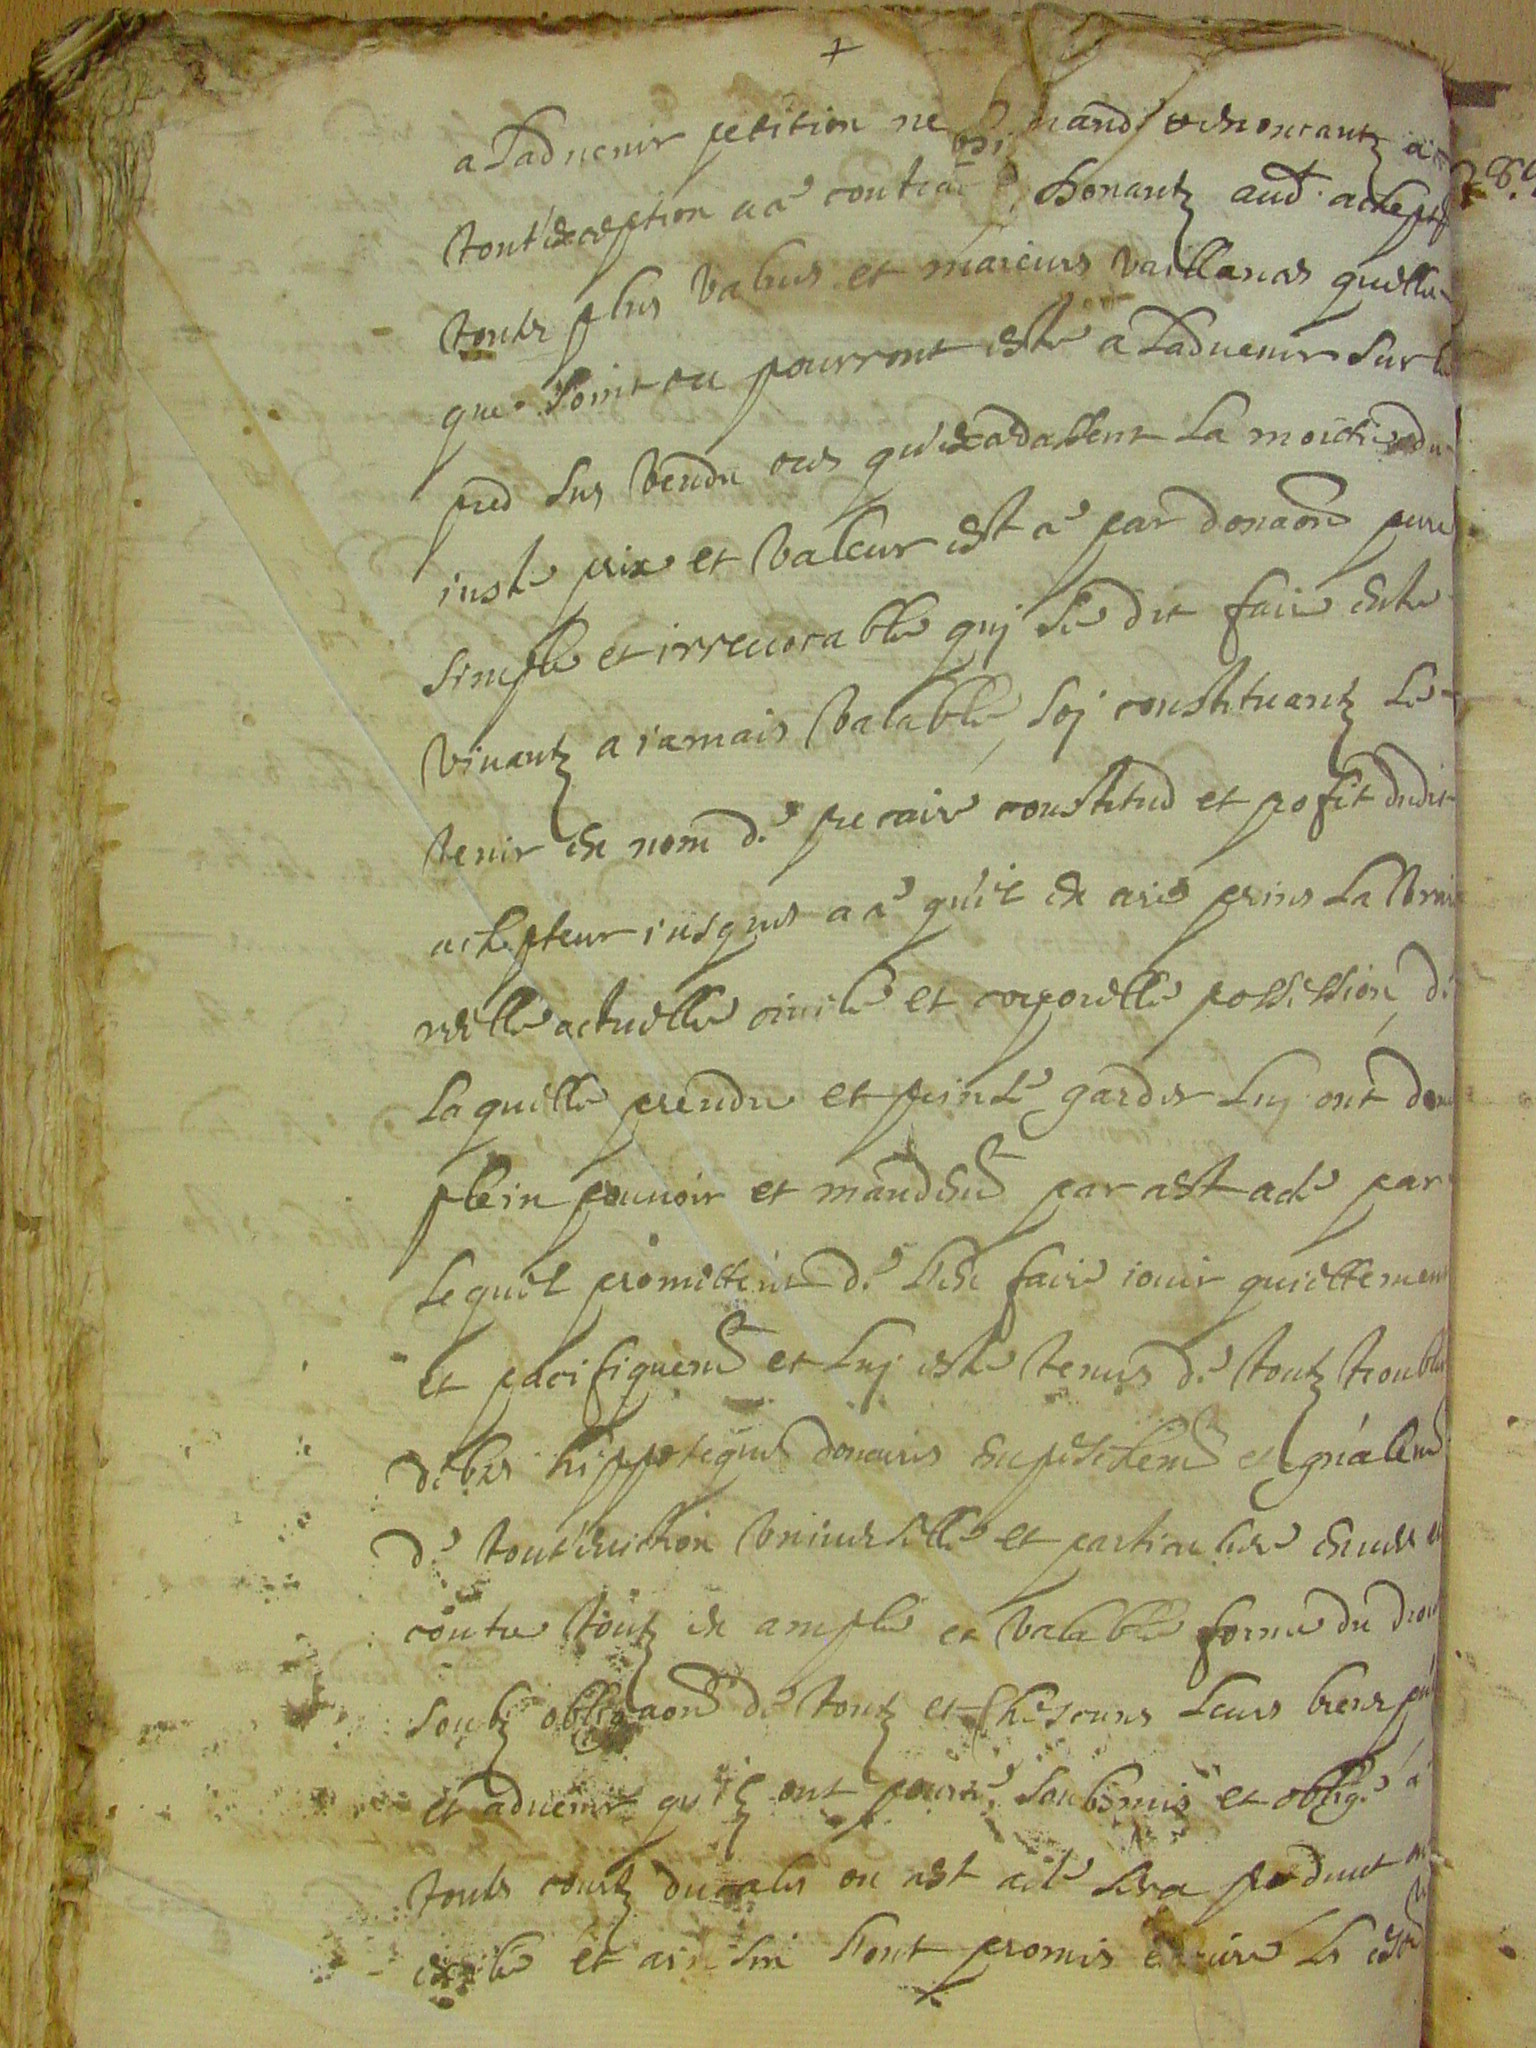 +
a l'aduenir petition ne mand renoncantz a
tout'exception a ce contraire, Donantz aud.t achept
toute plus values et maieurs vaillances quelle
que soint ou pourront estre a l'aduenir sur le
pred sus vendu ores qu'excedassent la moictie du
juste prix et valeur est ce par dona͠on pure
simple et irreuocable quj se dit faire entre
viuantz a iamais valable, soj constituantz le
tenir en nom de precaire constitud et profit dudit
achepteur iusques a ce qu'il en aie prins la vraie
reelle actuelle ciuile et corporelle possession, de
laquelle prendre et prinse garder luj ont donne
plein pouuoir et mandem.t par cest acte par
lequel promettent de l'en faire iouir quiettement
et pacifiquem.t et luj estre tenus de toutz troubles
debtes hippoteques donaires empeschem.t et gn͠alem.t
de tout'euiction vniuerselle et particuliere enuers et
contre toutz en ample et valable forme du droit
soubz obliga͠on de toutz et chescuns leurs biens pn͠t
et aduenir qu'ilz ont pource soubsmis et oblige a
toutes courtz ducales ou cest acte sera produict
exibe et ainsin l'ont promis et iure les